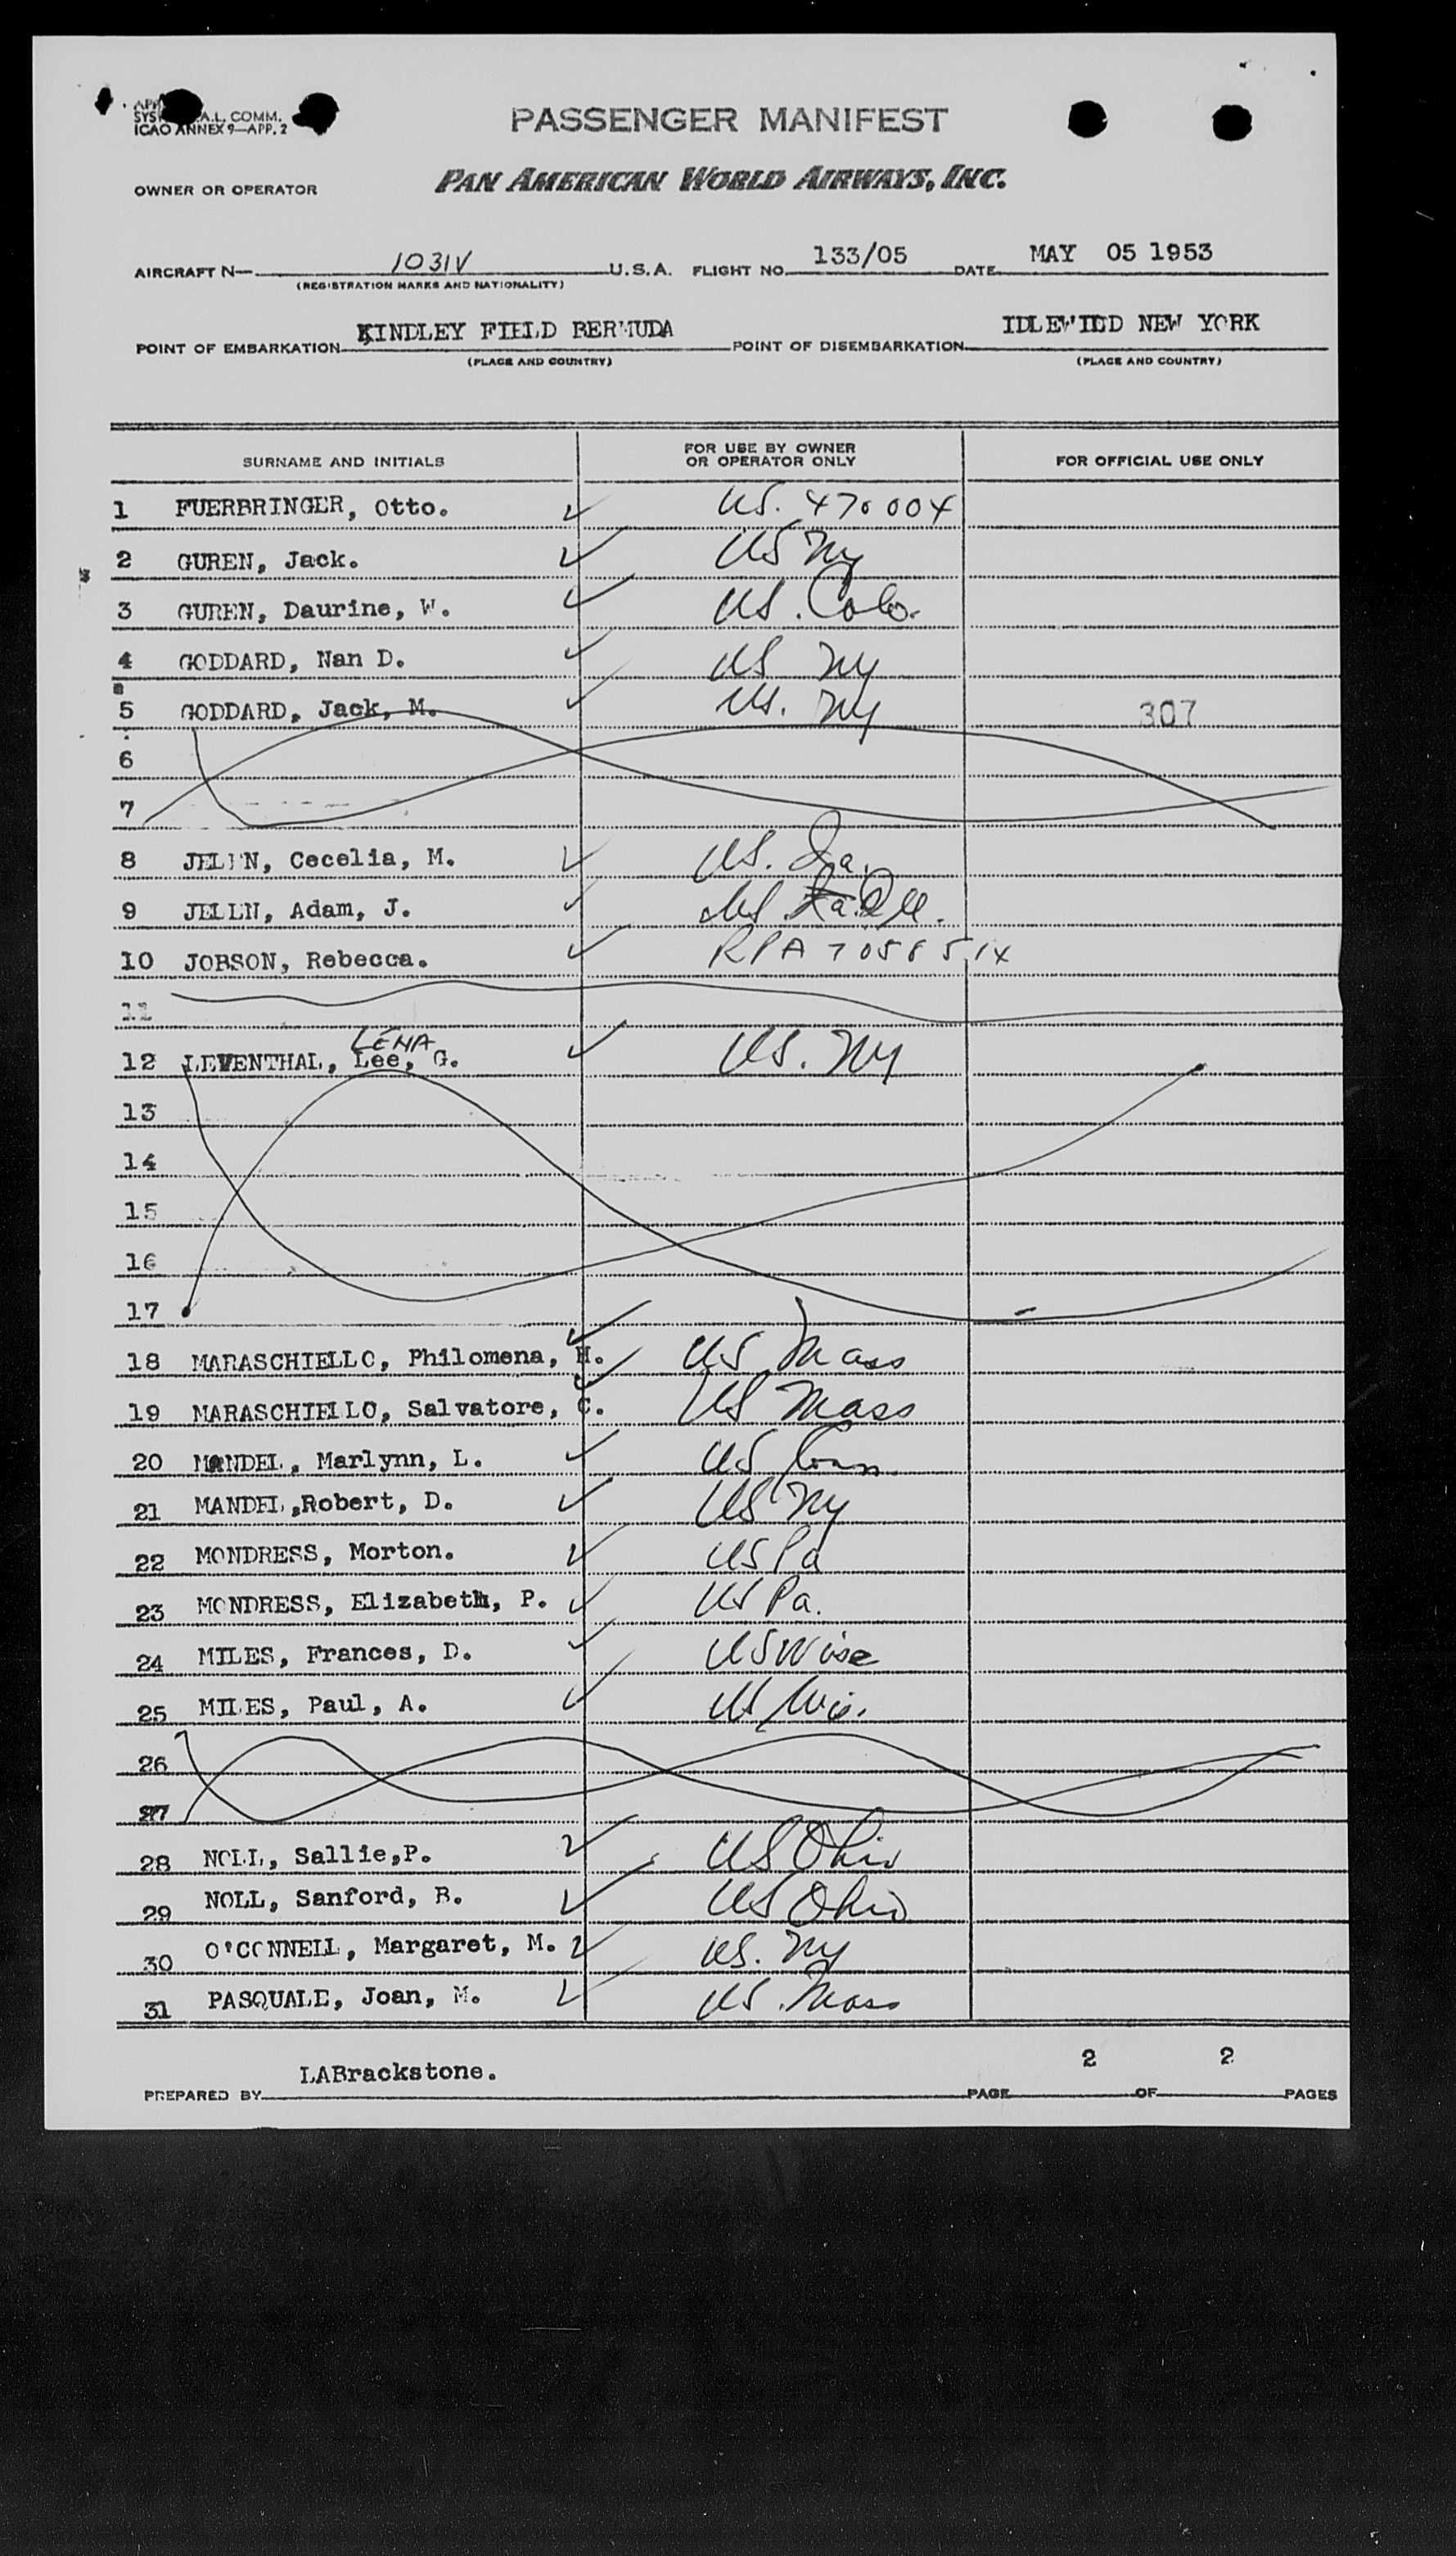 SYS A.L. COMM.
ICAO ANNEX 9—APP. 2
PASSENGER MANIFEST
OWNER OR OPERATOR PAN AMERICAN WORLD AIRWAYS, INC.
AIRCRAFT N— 1031V U.S.A. FLIGHT NO. 133/05 DATE MAY 05 1953
(REGISTRATION MARKS AND NATIONALITY)
POINT OF EMBARKATION KINDLEY FIELD BERMUDA POINT OF DISEMBARKATION IDLEWIDD NEW YORK
(PLACE AND COUNTRY) (PLACE AND COUNTRY)
SURNAME AND INITIALS FOR USE BY OWNER OR OPERATOR ONLY FOR OFFICIAL USE ONLY
1 FUERBRINGER, Otto. ✓ US. 470004
2 GUREN, Jack. ✓ US NY
3 GUREN, Daurine, W. ✓ US. Colo.
4 GODDARD, Nan D. ✓ US NY
5 GODDARD, Jack, M. ✓ US. NY 307
6
7
8 JELLN, Cecelia, M. ✓ US.
9 JELLN, Adam, J. ✓ US
10 JOBSON, Rebecca. ✓ RPA
11
12 LEVENTHAL, Lee, LENA G. ✓ US. NY
13
14
15
16
17
18 MARASCHIELLO, Philomena, H. ✓ US Mass
19 MARASCHIELLO, Salvatore, C. ✓ US Mass
20 MANDEL, Marlynn, L. ✓ US Conn
21 MANDEL,Robert, D. ✓ US NY
22 MONDRESS, Morton. ✓ US Pa
23 MONDRESS, Elizabeth, P. ✓ US Pa.
24 MILES, Frances, D. ✓ US Wisc
25 MILES, Paul, A. ✓ US Wis.
26
27
28 NOLL, Sallie,P. ✓ US Ohio
29 NOLL, Sanford, B. ✓ US Ohio
30 O'CONNELL, Margaret, M. ✓ US. NY
31 PASQUALE, Joan, M. ✓ US. Mass
PREPARED BY LABrackstone. PAGE 2 OF 2 PAGES